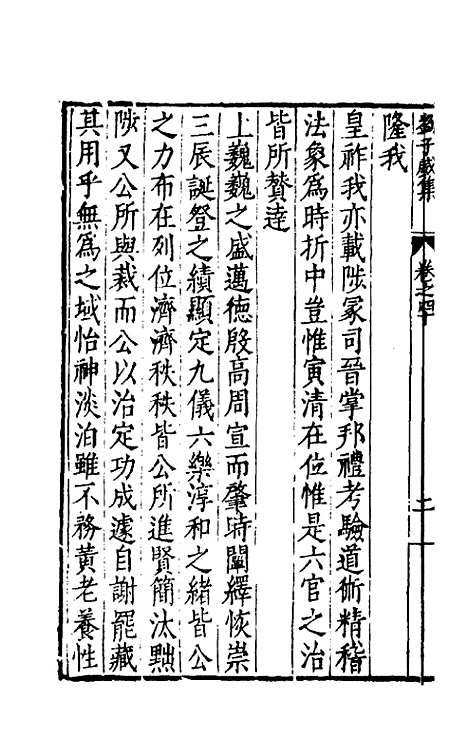 隆我
皇祚我亦載陟冢司晉掌邦禮考驗道術精稽
法象爲時折中豈惟寅清在位惟是六官之治
皆所贊逹
上巍巍之盛邁德殷高周宣而肇時闡繹恢崇
三辰誕登之績顯定九儀六樂淳和之緒皆公
之力布在列位濟濟秩秩皆公所進賢簡汰黜
陟又公所與裁而公以治定功成遽自謝罷藏
其用乎無爲之域怡神淡泊雖不務黄老養性
子威集
卷之四十
二